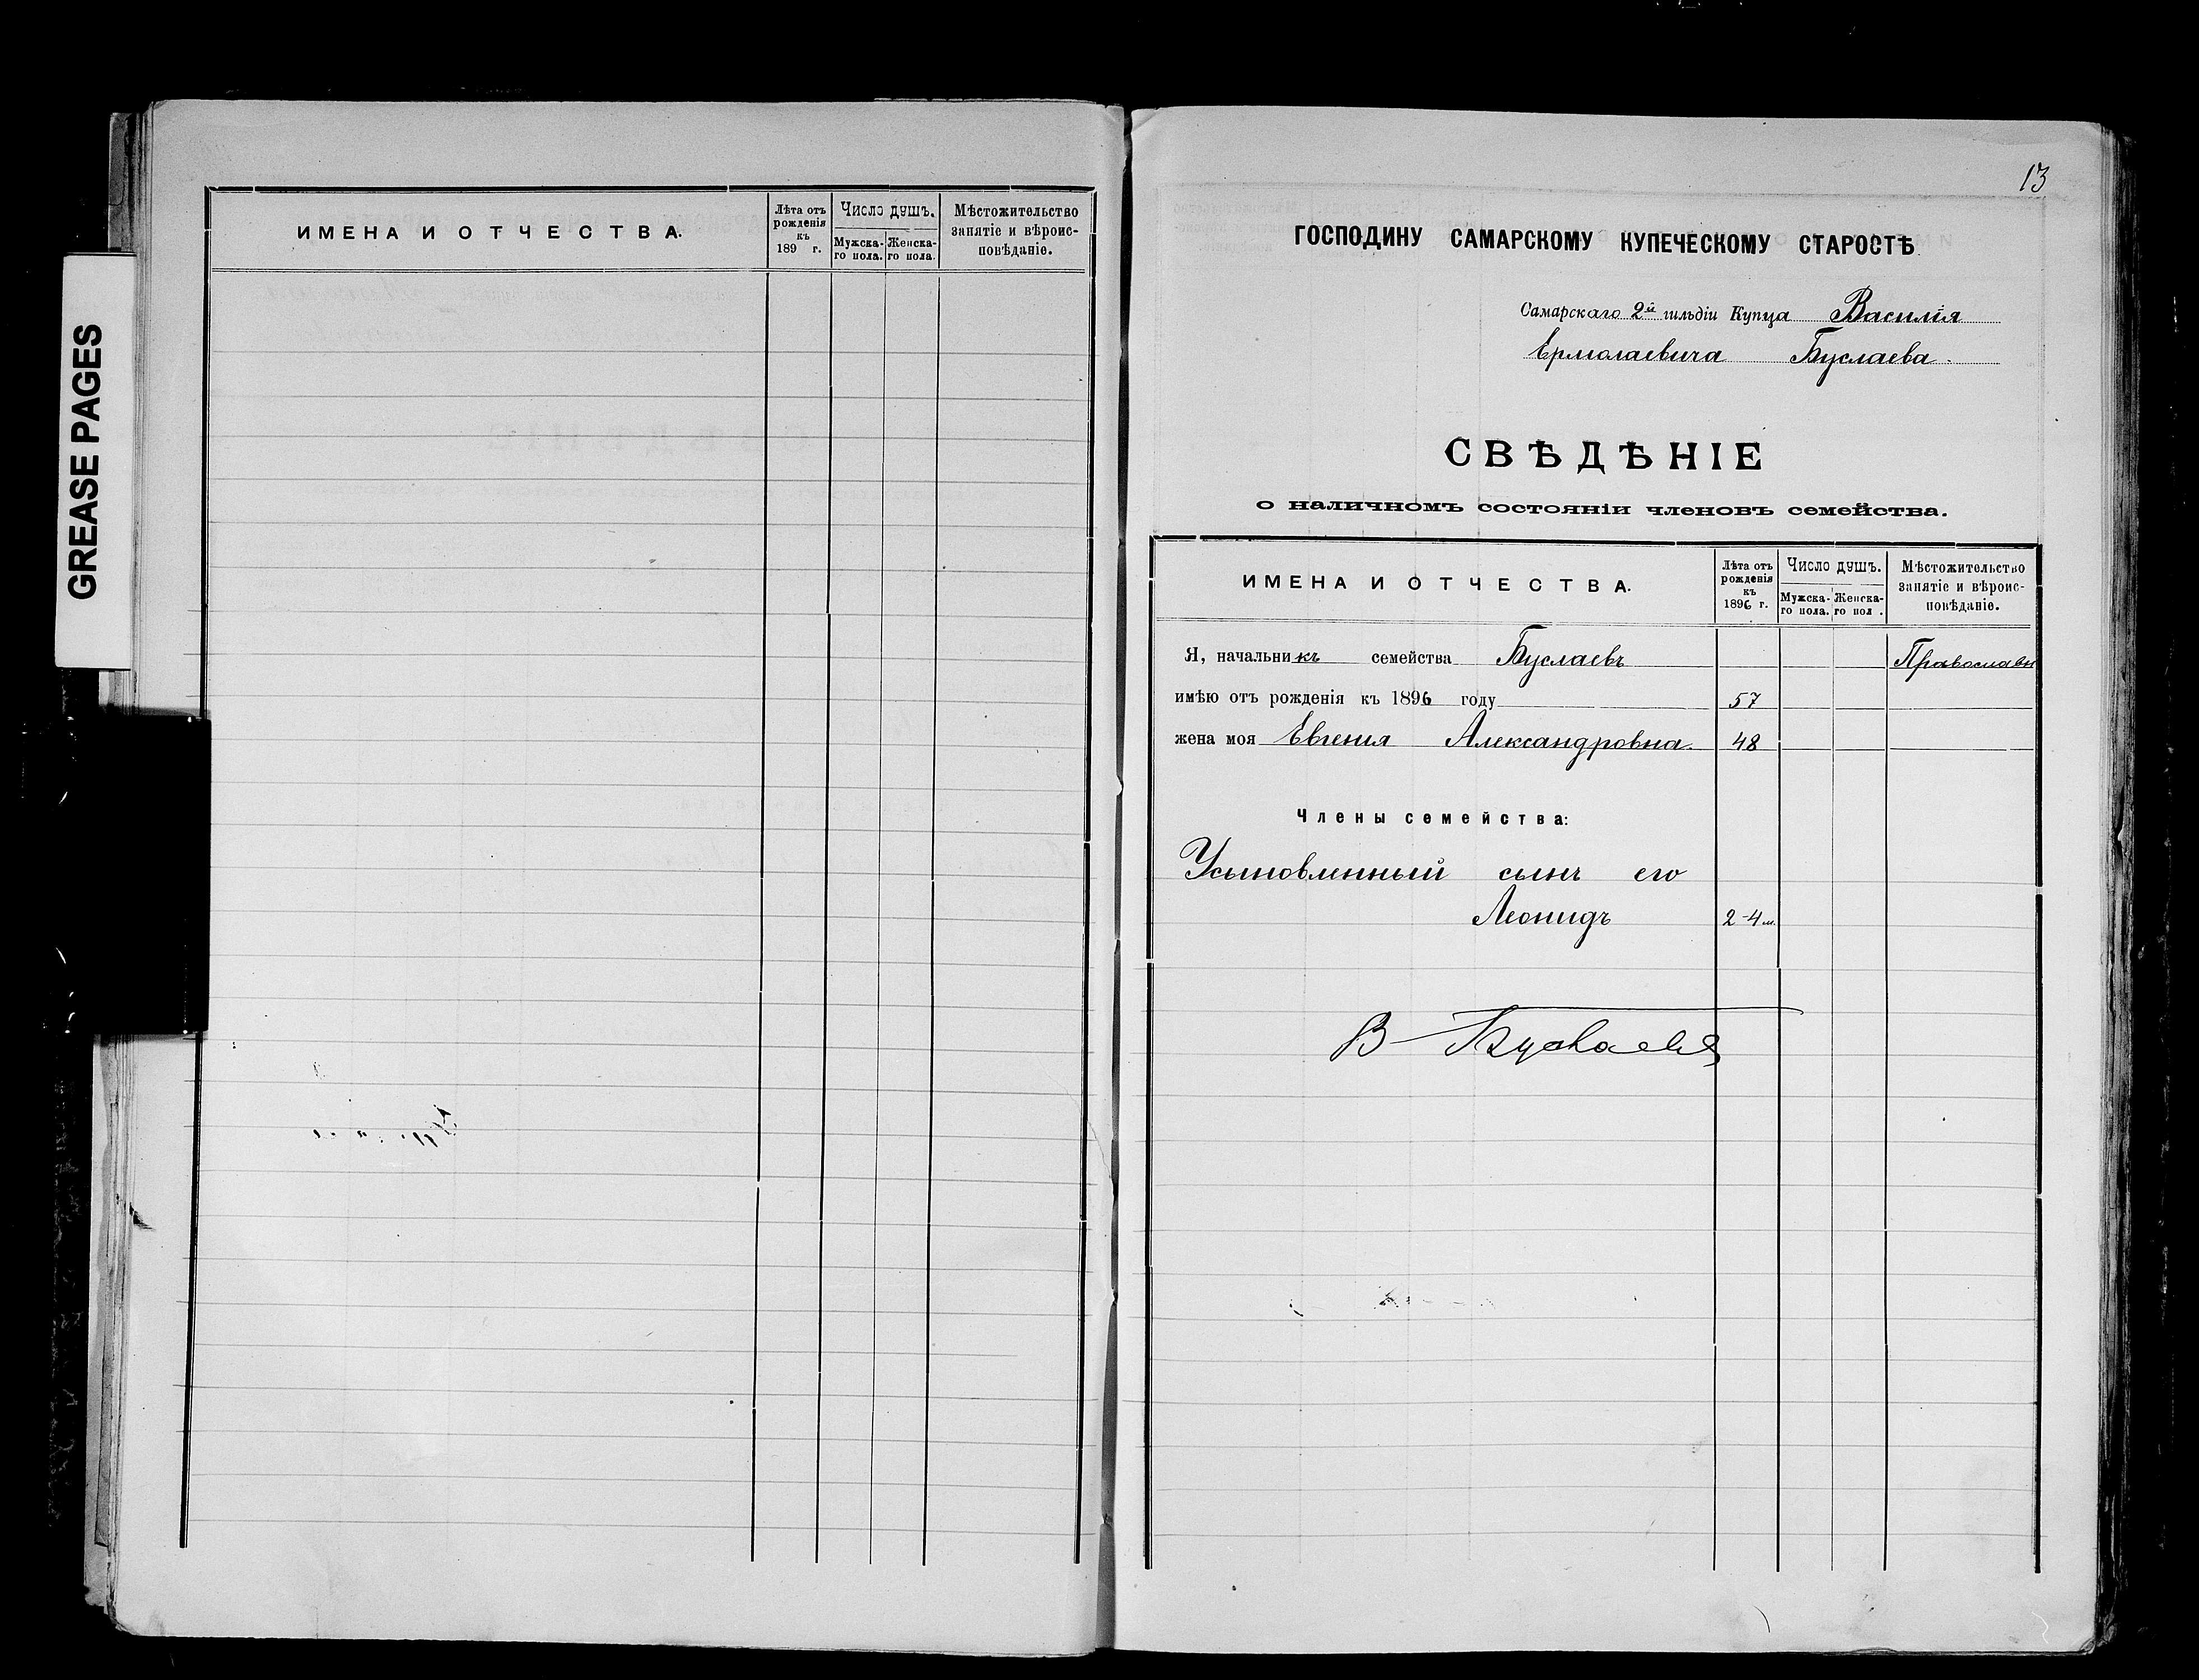 GREASE PAGES
ИМЕНА И ОТЧЕСТВА.
Лѣта отъ рожденія къ 189 г.
Число душъ.
Мужска-го пола.
Женска-го пола.
Мѣстожительство занятіе и вѣроис-повѣданіе.
13
ГОСПОДИНУ САМАРСКОМУ КУПЕЧЕСКОМУ СТАРОСТѢ
Самарскаго 2й гильдіи Купца Василія
Ермолаевича Буслаева.
СВѢДѢНІЕ
о наличномъ состояніи членовъ семейства.
ИМЕНА И ОТЧЕСТВА.
Лѣта отъ рожденія къ 1896 г.
Число душъ.
Мужска-го пола.
Женска-го пол .
Мѣстожительство занятіе и вѣроис-повѣданіе.
Я, начальникъ семейства Буслаевъ Православн
имѣю отъ рожденія къ 1896 году 57
жена моя Евгенія Александровна. 48
Члены семейства:
Усыновленный сынъ его
Леонидъ 2-4 м.
В Буслаевъ